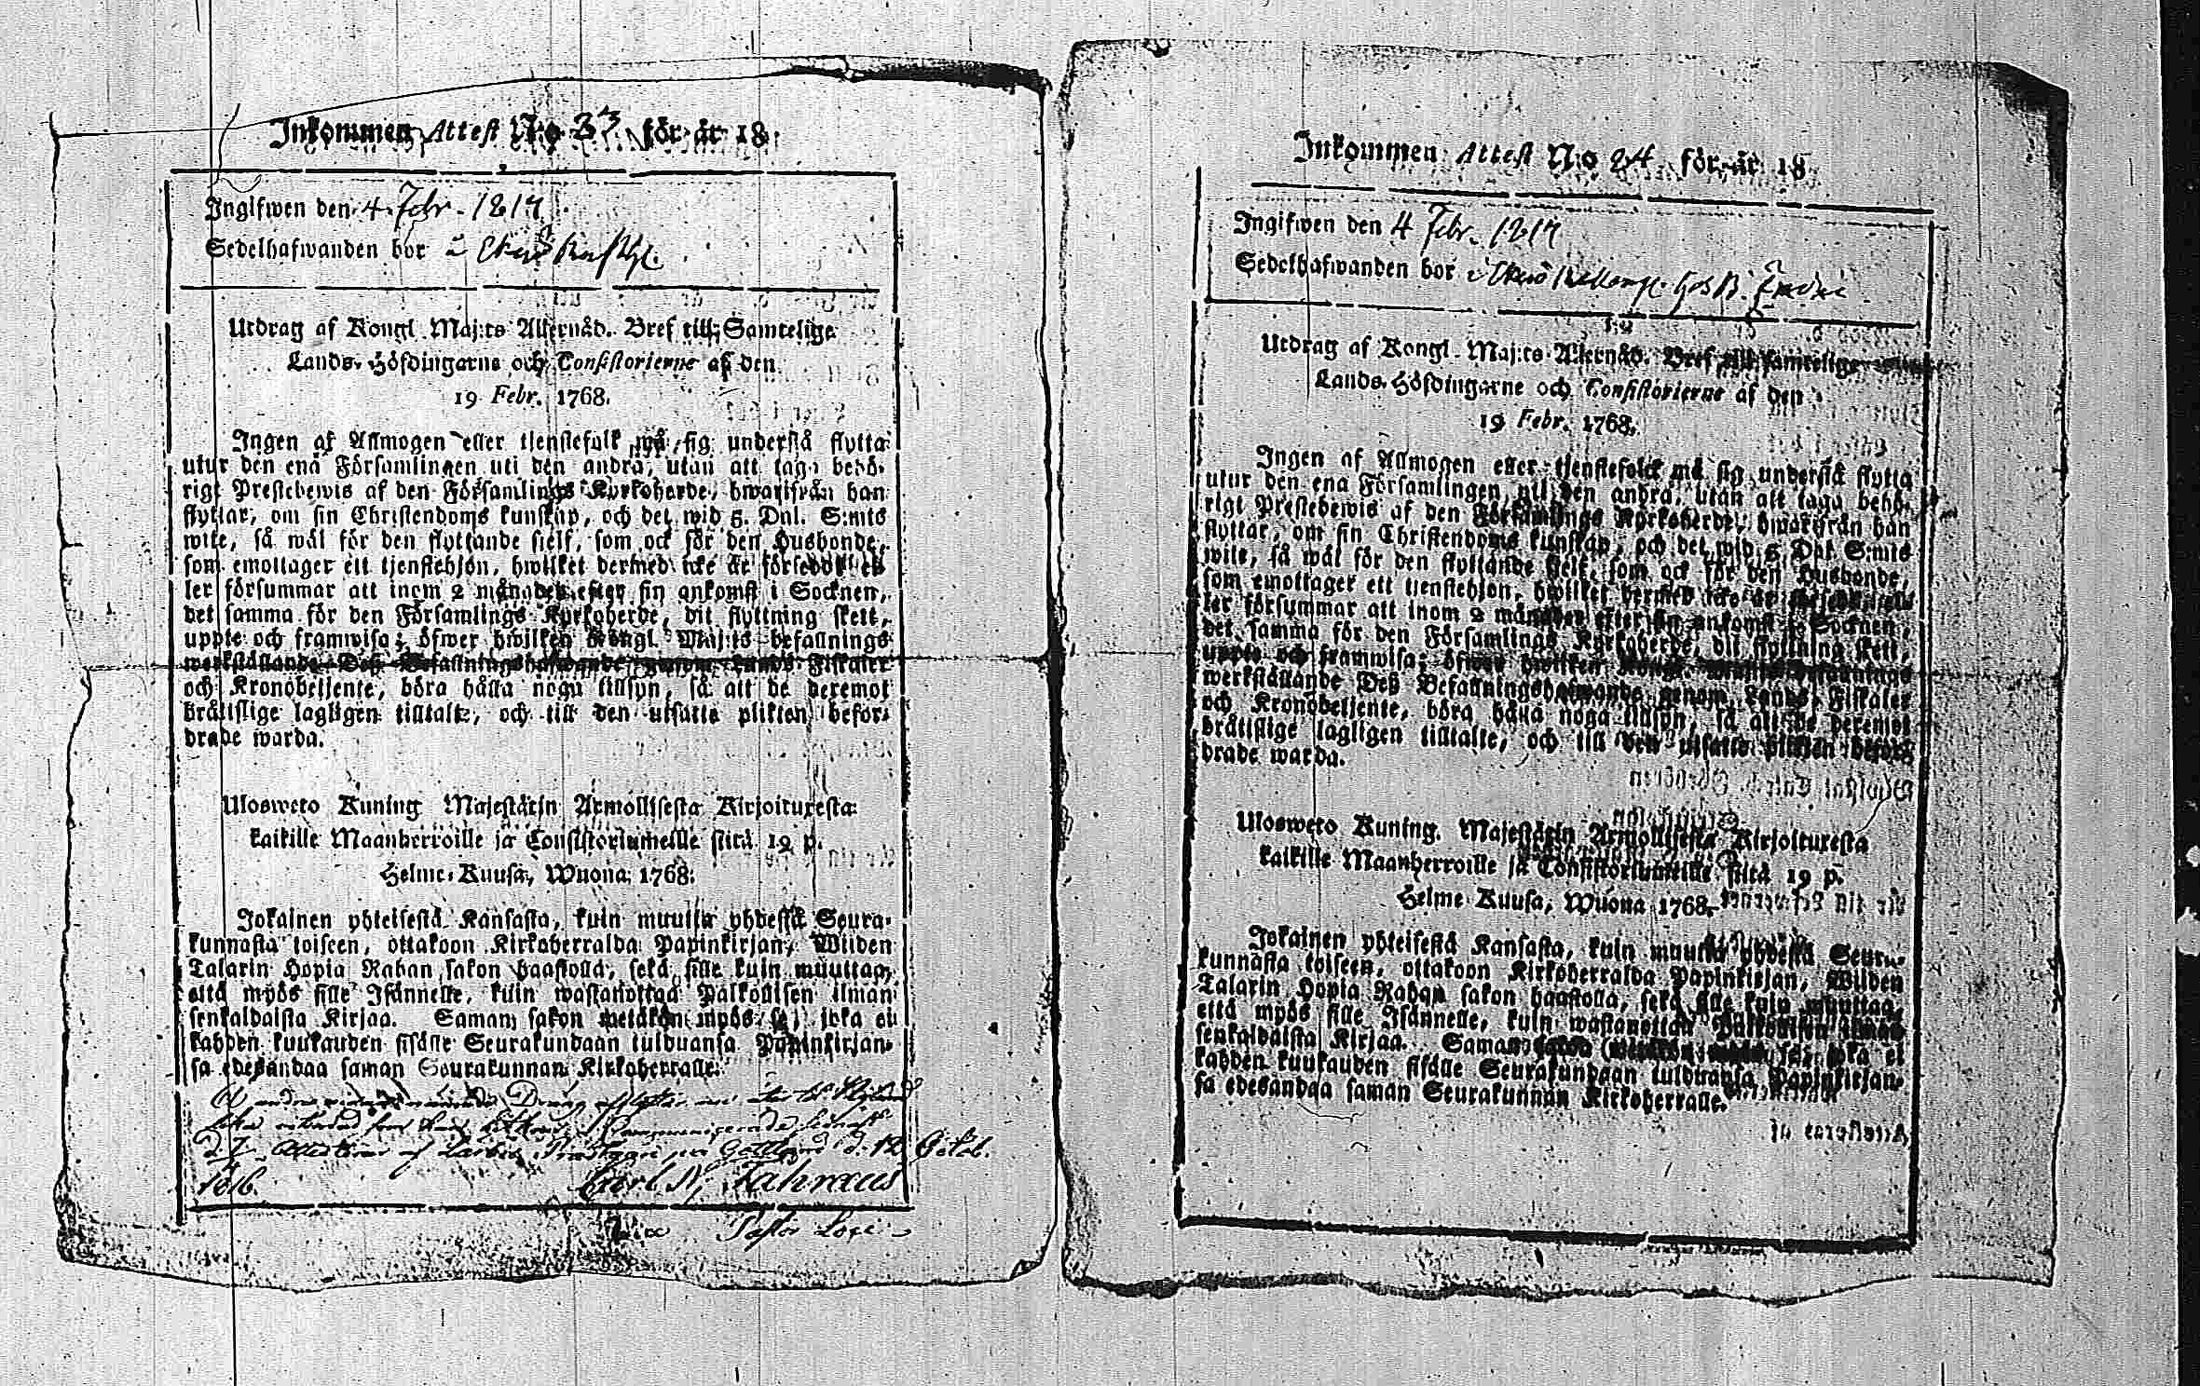 Inkommen Attest N:o 23 för år 18
Ingifwen den 4 Febr. 1817
Sedelhafwanden bor
Utdrag af Kongl. Maj:ts Allernåd. Bref till Samtelige
Lands-Höfdingarne och Consistorierne af den
19 Febr. 1768.
Ingen af Allmogen eller tjenstefolk må sig understå flytta
utur den ena Församlingen uti den andra, utan att taga behö-
rigt Prestebewis af den Församlings Kyrkoherde, hwarifrån han
flyttar, om sin Christendoms kunskap, och det wid 5. Dal. S:mts
wite, så wäl för den flyttande sielf, som ock för den Husbonde,
som emottager ett tjenstehjon, hwilket dermed icke är försedd, el-
ler försummar att inom 2 månader efter sin ankomst i Socknen,
det samma för den Församlings Kyrkoherde, dit flyttning skett,
uppte och framwisa; öfwer hwilken Kongl. Maj:ts befallnings
werkställande Deß Befallningshafwande genom Lands-Fiskaler
och Kronobetjente, böra hålla noga tillsyn, så att de deremot
bråttslige lagligen tilltalte, och till den utsatte plikten beford-
rade warda.
Ulosweto Kuning Majestätin Armollisesta Kirjoituxesta
kaikille Maanherroille ja Consistoriumeille siitä 19 p.
Helme-Kuusa, Wuona 1768.
Jokainen yhteisestä Kansasta, kuin muutta yhdestä Seura-
kunnasta toiseen, ottakoon Kirkoherralda Papinkirjan, Wiiden
Talarin Hopia Rahan sakon haastolla, sekä sille kuin muuttaa,
että myös sille Isännelle, kuin wastanottaa Palkollisen ilman
senkaldaista Kirjaa. Saman sakon wetäkön myös se, joka ei
kahden kuukauden sisälle Seurakundaan tulduansa Papinkirjan-
sa edesandaa saman Seurakunnan Kirkoherralle.
d. 12 Octob.
1816. Carl N. Fahræus
Pastor Loci
Inkommen Attest N:o 24 för år 18
Ingifwen den 4 Febr. 1817
Sedelhafwanden bor
Utdrag af Kongl. Maj:ts Allernåd. Bref till samtelige
Lands-Höfdingarne och Consistorierne af den
19 Febr. 1768.
Ingen af Allmogen eller tjenstefolck må sig understå flytta
utur den ena Församlingen uti den andra, utan att taga behö-
rigt Prestebewis af den Församlings Kyrkoherde, hwarifrån han
flyttar, om sin Christendoms kunskap, och det wid 5. Dal. S:mts
wite, så wäl för den flyttande sielf, som ock för den Husbonde,
som emottager ett tjenstehjon, hwilket dermed icke är försedd, eller
försummar att inom 2 månader efter sin ankomst i Socknen,
det samma för den Församlings Kyrkoherde, dit flyttning skett,
uppte och framwisa; öfwer hwilken Kongl. Maj:ts befallnings
werkställande Deß Befallningshafwande genom Lands-Fiskaler
och Kronobetjente, böra hålla noga tillsyn, så att de deremot
bråttslige lagligen tilltalte, och till den utsatte plikten beford-
rade warda.
Ulosweto Kuning. Majestätin Armollisesta Kirjoituxesta
kaikille Maanherroille ja Consistoriumeille siitä 19 p.
Helme-Kuusa, Wuona 1768.
Jokainen yhteisestä Kansasta, kuin muutta yhdestä Seura-
kunnasta toiseen, ottakoon Kirkoherralda Papinkirjan, Wiiden
Talarin Hopia Rahan sakon haastolla, sekä sille kuin muuttaa,
että myös sille Isännelle, kuin wastanottaa Palkollisen ilman
senkaldaista Kirjaa. Saman sakon wetäkön myös se, joka ei
kahden kuukauden sisälle Seurakundaan tulduansa Papinkirjan-
sa edesandaa saman Seurakunnan Kirkoherralle.